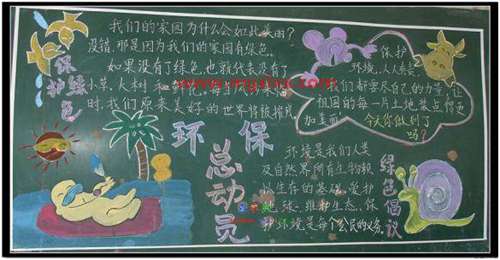 保护绿色
我们的家园为什么会如此美丽?
没错,那是因为我们的家园有绿色。
如果没有了绿色,也就代表没有了
小草、大树和
时,我们原来美好的世界将被摧毁。
保护
环境,人人有责。
我们都要尽自己的力量,让
祖国的每一片土地装点得更
加美丽。
今天你做到了
吗?
环保
总动员
环境是我们人类
及自然界所有生物赖
以生存的基础,爱护
地球、维护生态、保
护环境是每个公民的义务。
绿色倡议